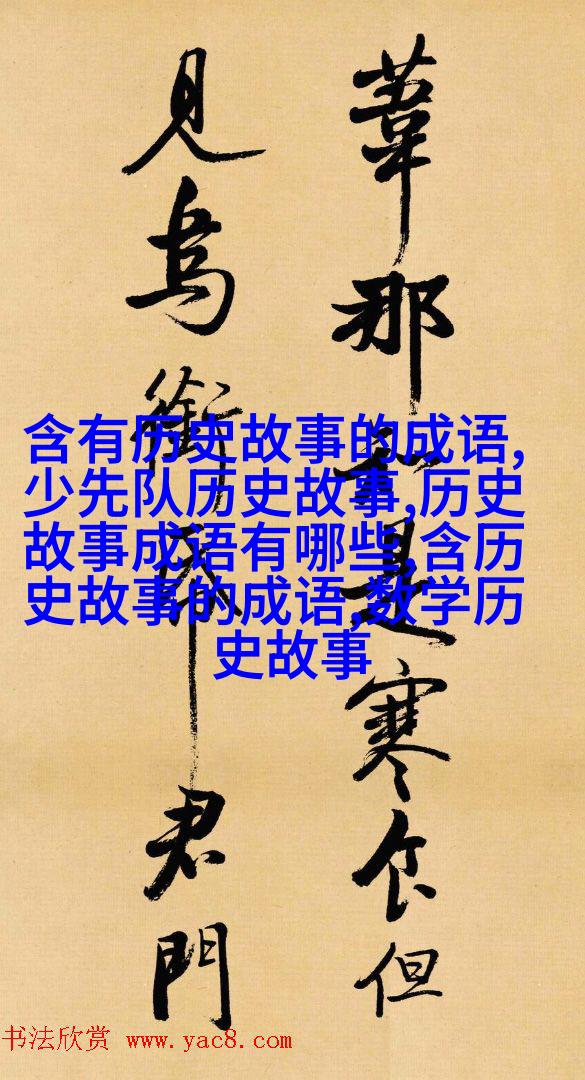 葦那是寒食但
見烏銜君門
含有历史故事的成语,
少先队历史故事,历史
故事成语有哪些,含历
史故事的成语,数学历
史故事
书法欣赏 www.yac8.com